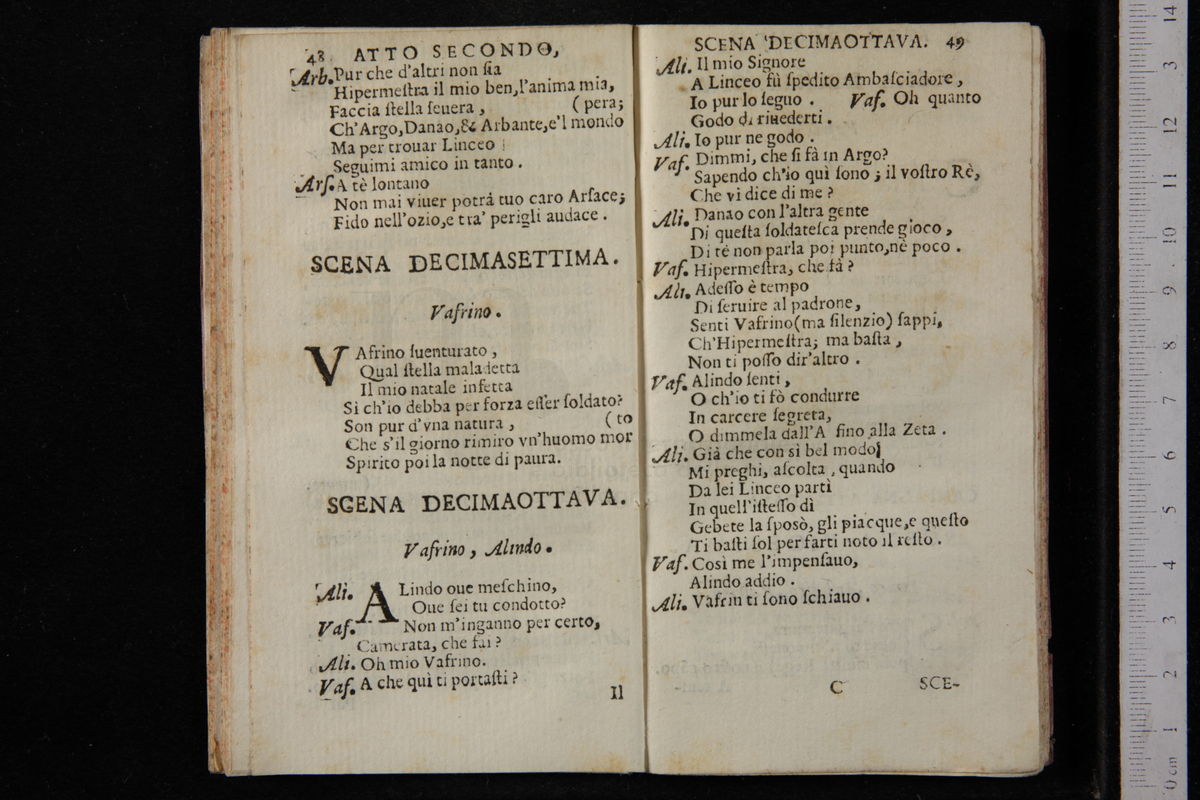 48 ATTO SECONDO,
Arb. Pur che d'altri non ſia
Hipermeſtra il mio ben, l'anima mia,
Faccia ſtella ſeuera, ( pera;
Ch'Argo, Danao, & Arbante, e'l mondo
Ma per trouar Linceo
Seguimi amico in tanto.
Arſ. A tè lontano
Non mai viuer potrà tuo caro Arſace;
Fido nell'ozio, e tra' perigli audace.
SCENA DECIMASETTIMA.
Vafrino.
VAfrino ſuenturato,
Qual ſtella maladetta
Il mio natale infetta
Sì ch'io debba per forza eſſer ſoldato?
Son pur d'vna natura, ( to
Che s'il giorno rimiro vn'huomo mor
Spirito poi la notte di paura.
SCENA DECIMAOTTAVA.
Vafrino, Alindo.
Ali. ALindo oue meſchino,
Oue ſei tu condotto?
Vaf. Non m'inganno per certo,
Camerata, che fai?
Ali. Oh mio Vafrino.
Vaf. A che quì ti portaſti?
Il
SCENA DECIMAOTTAVA. 49
Ali. Il mio Signore
A Linceo fù ſpedito Ambaſciadore,
Io pur lo ſeguo. Vaf. Oh quanto
Godo di riuederti.
Ali. Io pur ne godo.
Vaf. Dimmi, che ſi fà in Argo?
Sapendo ch'io quì ſono; il voſtro Rè,
Che vi dice di me?
Ali. Danao con l'altra gente
Di queſta ſoldateſca prende gioco,
Di tè non parla poi punto, nè poco.
Vaf. Hipermeſtra, che fà?
Ali. Adeſſo è tempo
Di ſeruire al padrone,
Senti Vafrino (ma ſilenzio) ſappi,
Ch'Hipermeſtra; ma baſta,
Non ti poſſo dir'altro.
Vaf. Alindo ſenti,
O ch'io ti fò condurre
In carcere ſegreta,
O dimmela dall'A fino alla Zeta.
Ali. Già che con sì bel modo
Mi preghi, aſcolta, quando
Da lei Linceo partì
In quell'iſteſſo dì
Gebete la ſposò, gli piacque, e queſto
Ti baſti ſol per farti noto il reſto.
Vaf. Così me l'impenſauo,
Alindo addio.
Ali. Vafrin ti ſono ſchiauo.
C SCE-
14
3
12
11
10
9
8
7
6
5
4
3
2
1
0 cm